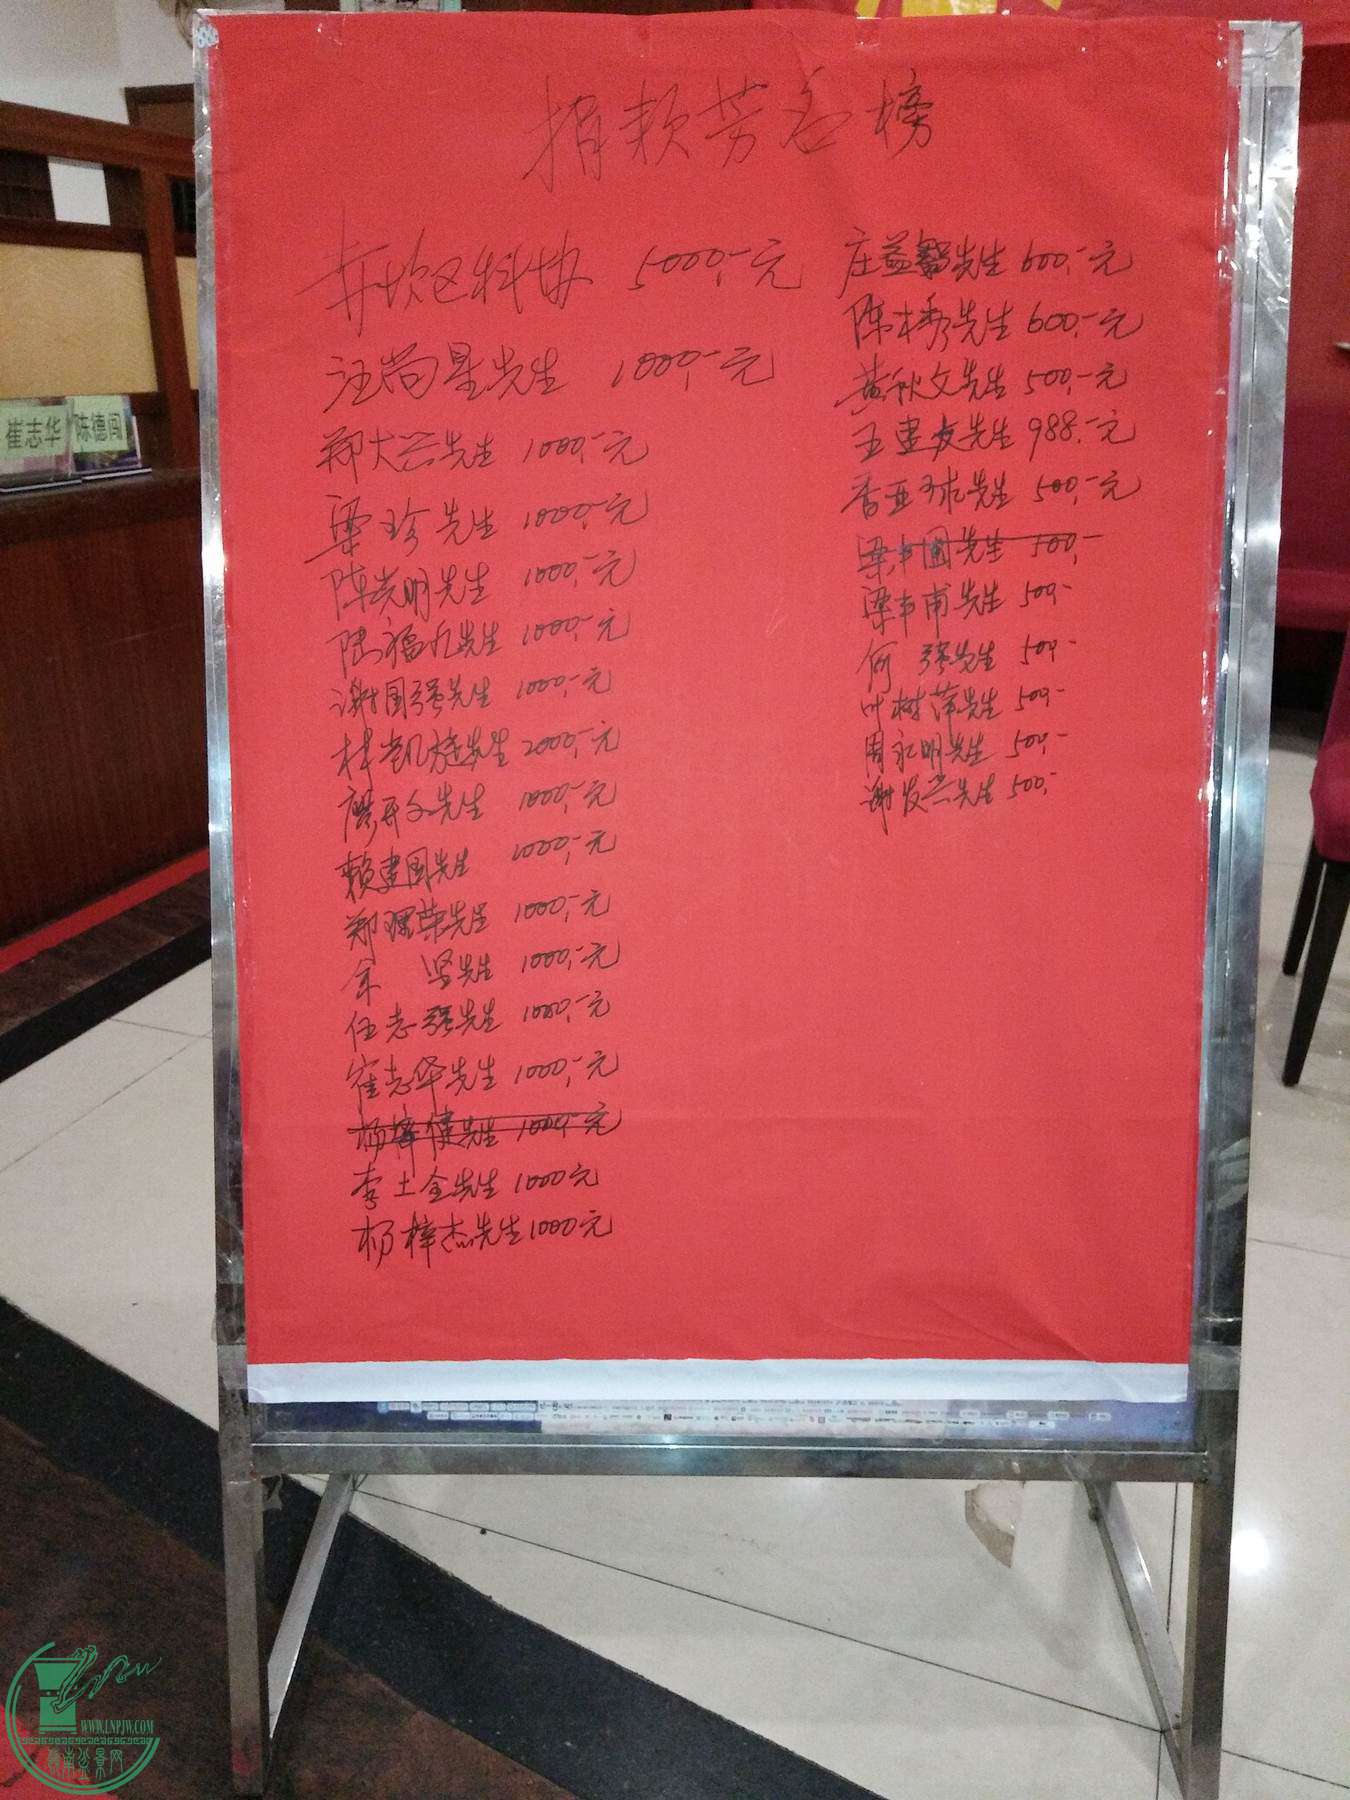 捐款芳名榜
坎区科协 5000.-元
汪尚星先生 1000.-元
郑大兴先生 1000.-元
梁珍先生 1000.-元
陈炭明先生 1000.-元
陆福九先生 1000.-元
谢国强先生 1000.-元
林凯旋先生 2000.-元
廖开文先生 1000.-元
赖建国先生 1000.-元
郑理荣先生 1000.-元
余 坚先生 1000.-元
任志强先生 1000.-元
崔志华先生 1000.-元
杨梓健先生 1000.-元
李土全先生 1000元
杨梓杰先生 1000元
庄益智先生 600.-元
陈木秀先生 600.-元
黄秋文先生 500.-元
王建友先生 988.-元
香亚球先生 500.-元
梁中国先生 500.-
梁中甫先生 500.-
何 强先生 500.-
叶树萍先生 500.-
周永明先生 500.-
谢发兴先生 500.-
崔志华
陈德闯
WWW.LNPJW.COM
岭南盆景网